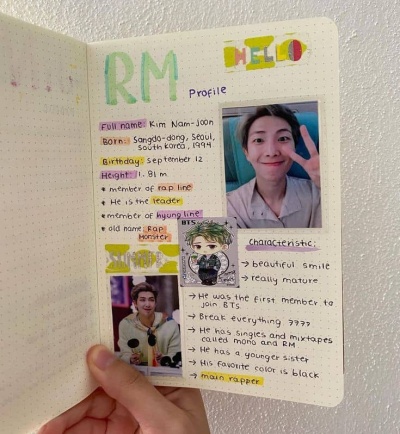 HELLO
RM
Profile
Full name: Kim Nam-joon
Born: Sangdo-dong, Seoul,
South korea, 1994
Birthday: September 12
Height: 1.81 m
* member of rap line
* He is the leader
* member of hyung line
* old name Rap
Monster
BTS
Characteristic:
→ beautiful smile
→ really mature
→ He was the first member to
join BTS
→ Break everything ????
→ He has singles and mixtapes
called mono and RM
→ He has a younger sister
→ His favorite color is black
→ main rapper